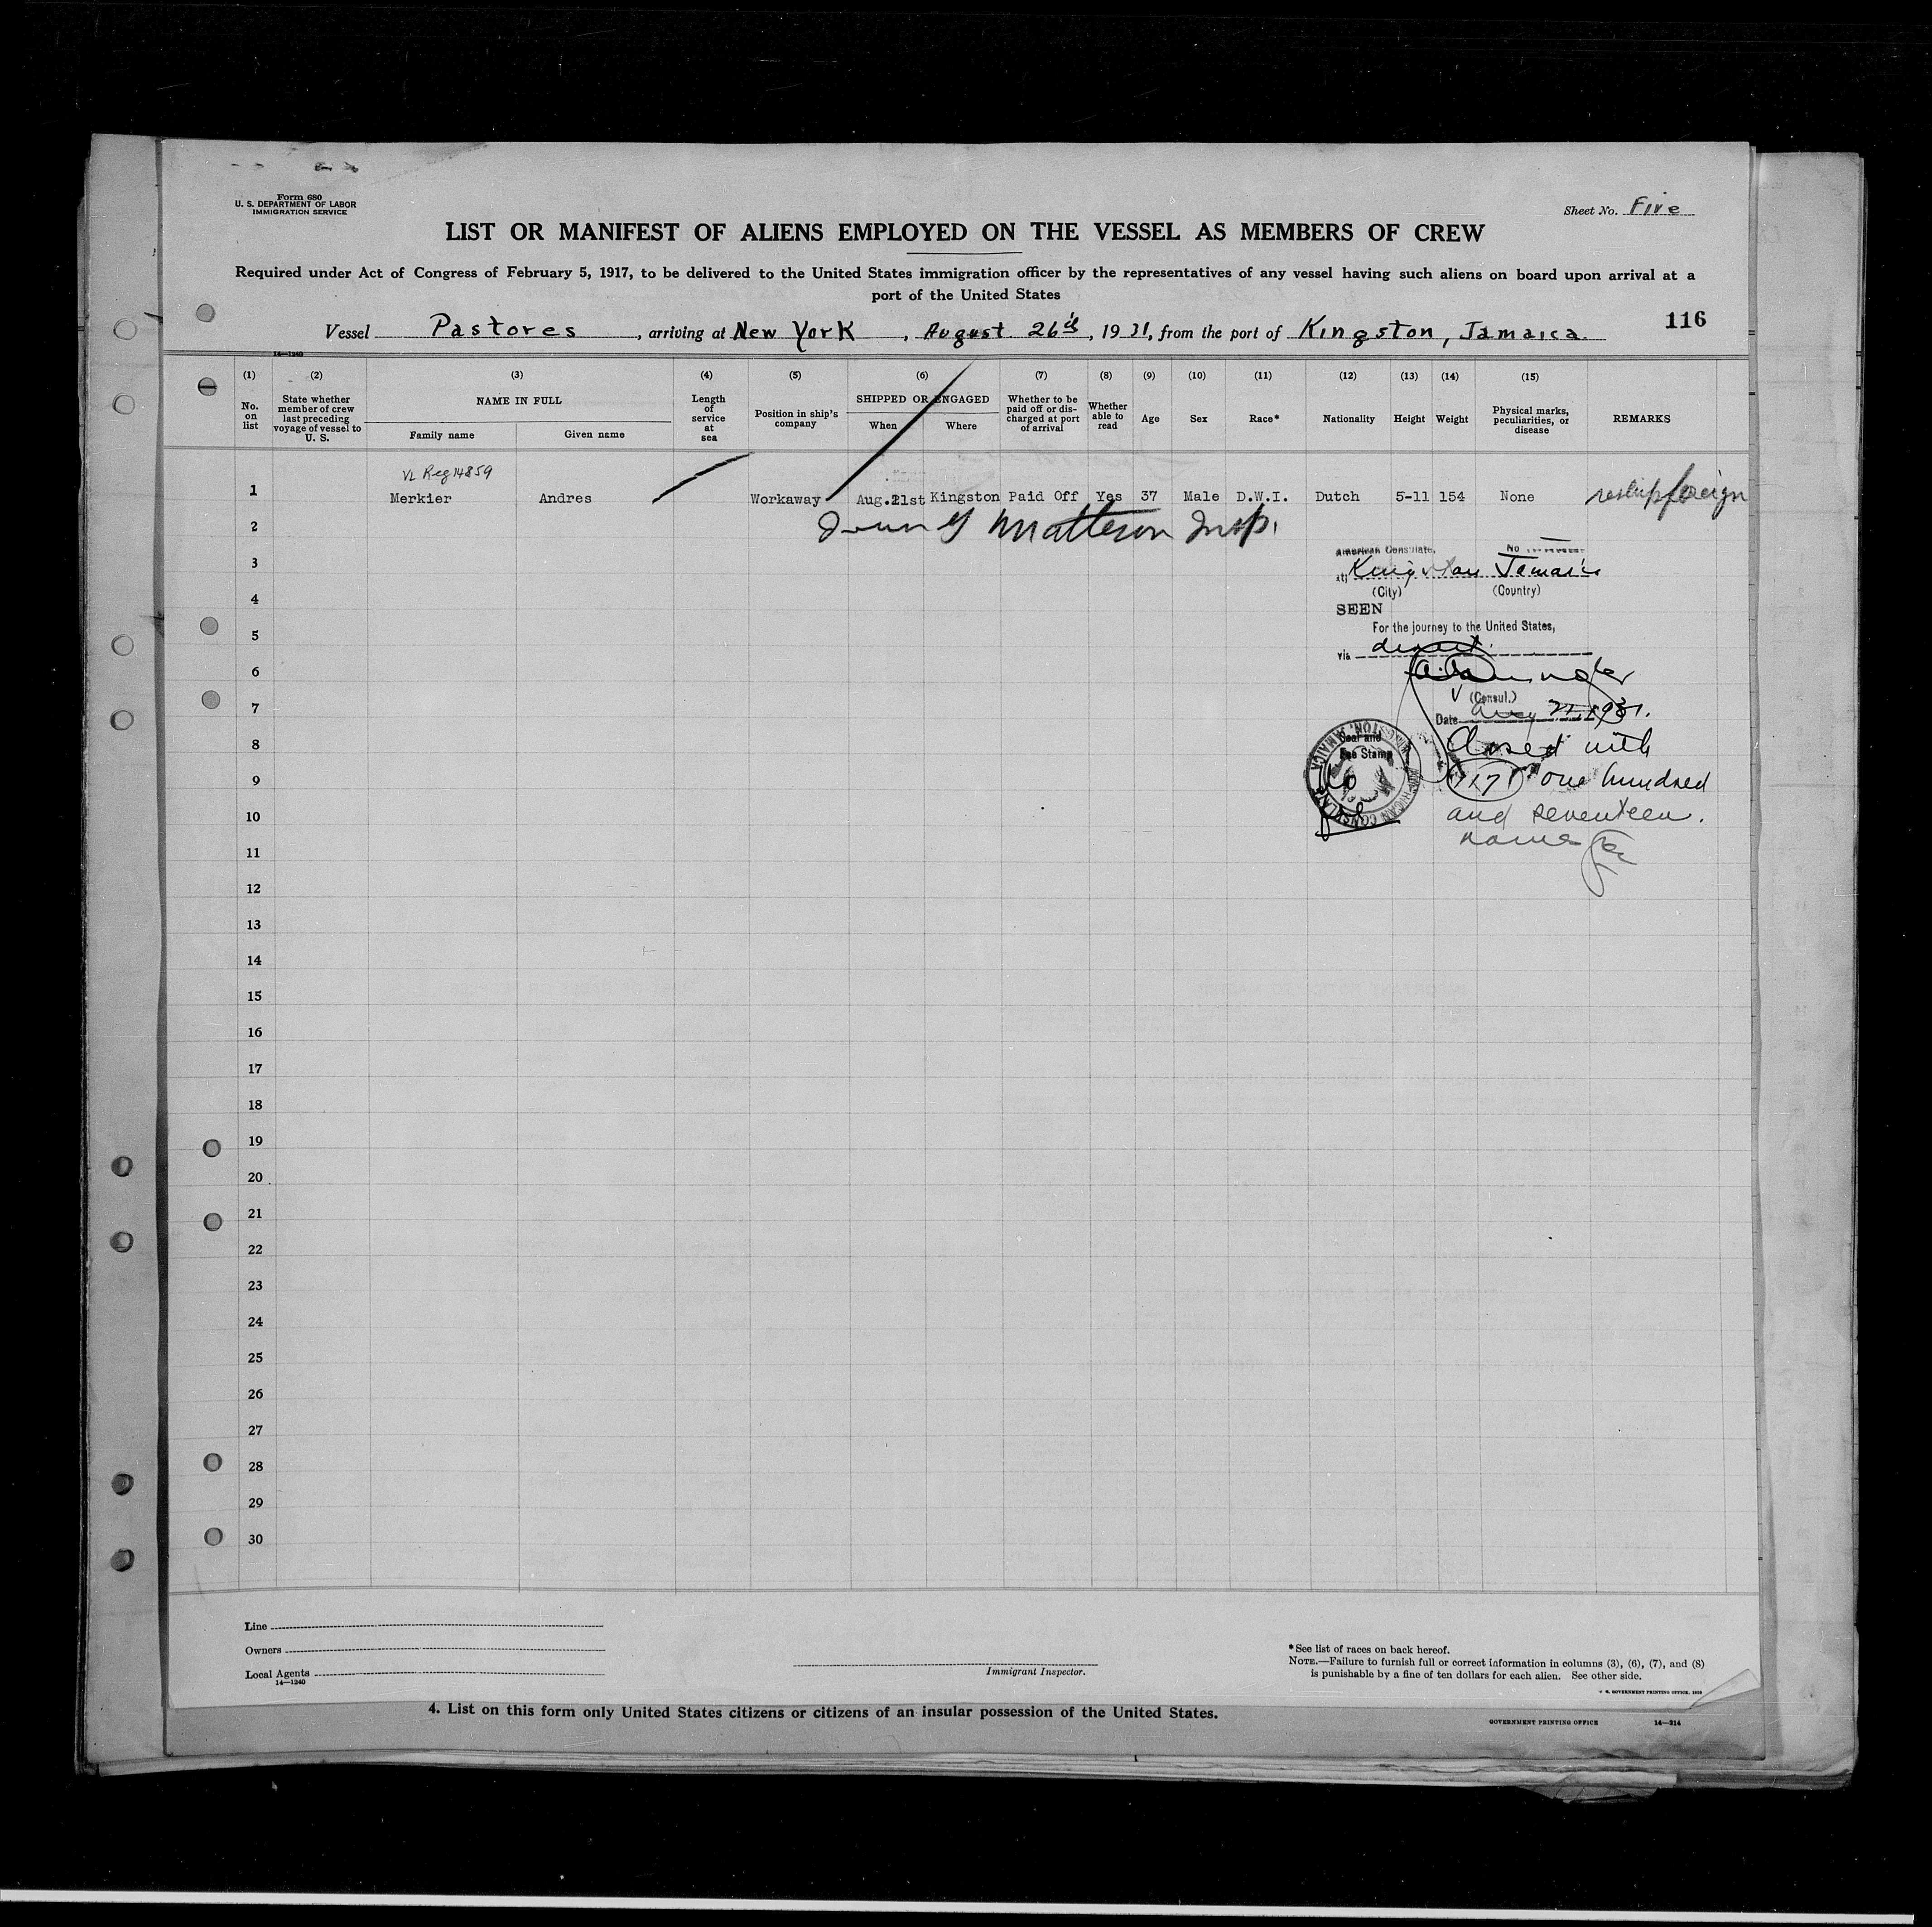 Form 680
U. S. DEPARTMENT OF LABOR
IMMIGRATION SERVICE
Sheet No. Five
LIST OR MANIFEST OF ALIENS EMPLOYED ON THE VESSEL AS MEMBERS OF CREW
Required under Act of Congress of February 5, 1917, to be delivered to the United States immigration officer by the representatives of any vessel having such aliens on board upon arrival at a
port of the United States
116
Vessel Pastores, arriving at New York, August 26th, 1931, from the port of Kingston, Jamaica.
14—1240
(1) (2) (3) (4) (5) (6) (7) (8) (9) (10) (11) (12) (13) (14) (15)
No. on list
State whether member of crew last preceding voyage of vessel to U. S.
NAME IN FULL
Family name
Given name
Length of service at sea
Position in ship's company
SHIPPED OR ENGAGED
When
Where
Whether to be paid off or discharged at port of arrival
Whether able to read
Age
Sex
Race*
Nationality
Height
Weight
Physical marks, peculiarities, or disease
REMARKS
Reg 14859
1 Merkier Andres Workaway Aug.21st Kingston Paid Off Yes 37 Male D.W.I. Dutch 5-11 154 None reship foreign
Matteson Insp.
2
3
4
5
6
7
8
9
10
11
12
13
14
15
16
17
18
19
20
21
22
23
24
25
26
27
28
29
30
American Consulate, No
at Kingston Jamaica
(City) (Country)
SEEN
For the journey to the United States,
via direct.
(Consul.)
Date Aug 21, 1931.
Seal and
Fee Stamp
AMERICAN CONSULATE KINGSTON, JAMAICA
Closed with
117 one hundred
and seventeen.
names
Line
Owners
Local Agents
14—1240
Immigrant Inspector.
*See list of races on back hereof.
NOTE.—Failure to furnish full or correct information in columns (3), (6), (7), and (8)
is punishable by a fine of ten dollars for each alien. See other side.
4. List on this form only United States citizens or citizens of an insular possession of the United States.
GOVERNMENT PRINTING OFFICE 14—314